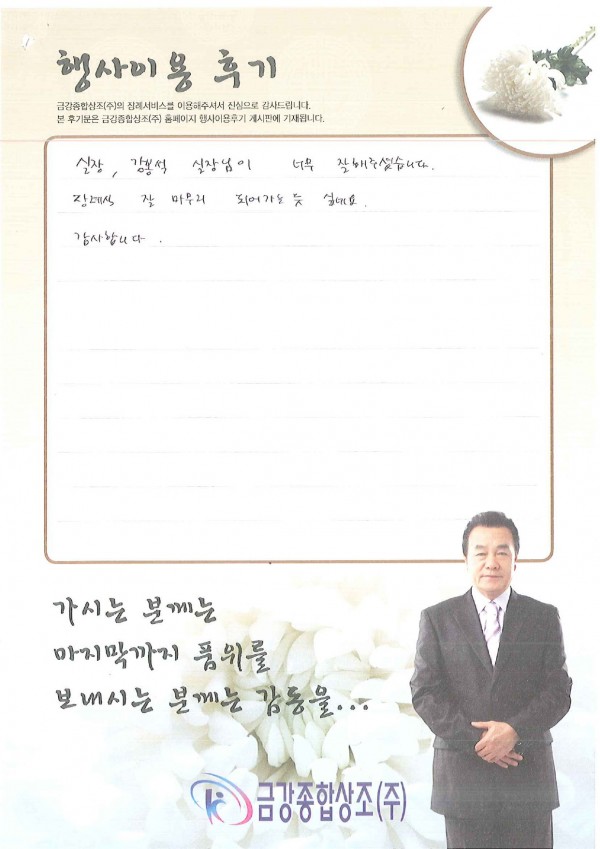 행사이용 후기
금강종합상조(주)의 장례서비스를 이용해주셔서 진심으로 감사드립니다.
본 후기문은 금강종합상조(주) 홈페이지 행사이용후기 게시판에 기재됩니다.
실장, 강봉석 실장님이 너무 잘해주셨습니다.
장례식 잘 마무리 되어가는 듯 싶네요.
감사합니다.
가시는 분께는
마지막까지 품위를
보내시는 분께는 감동을...
금강종합상조(주)